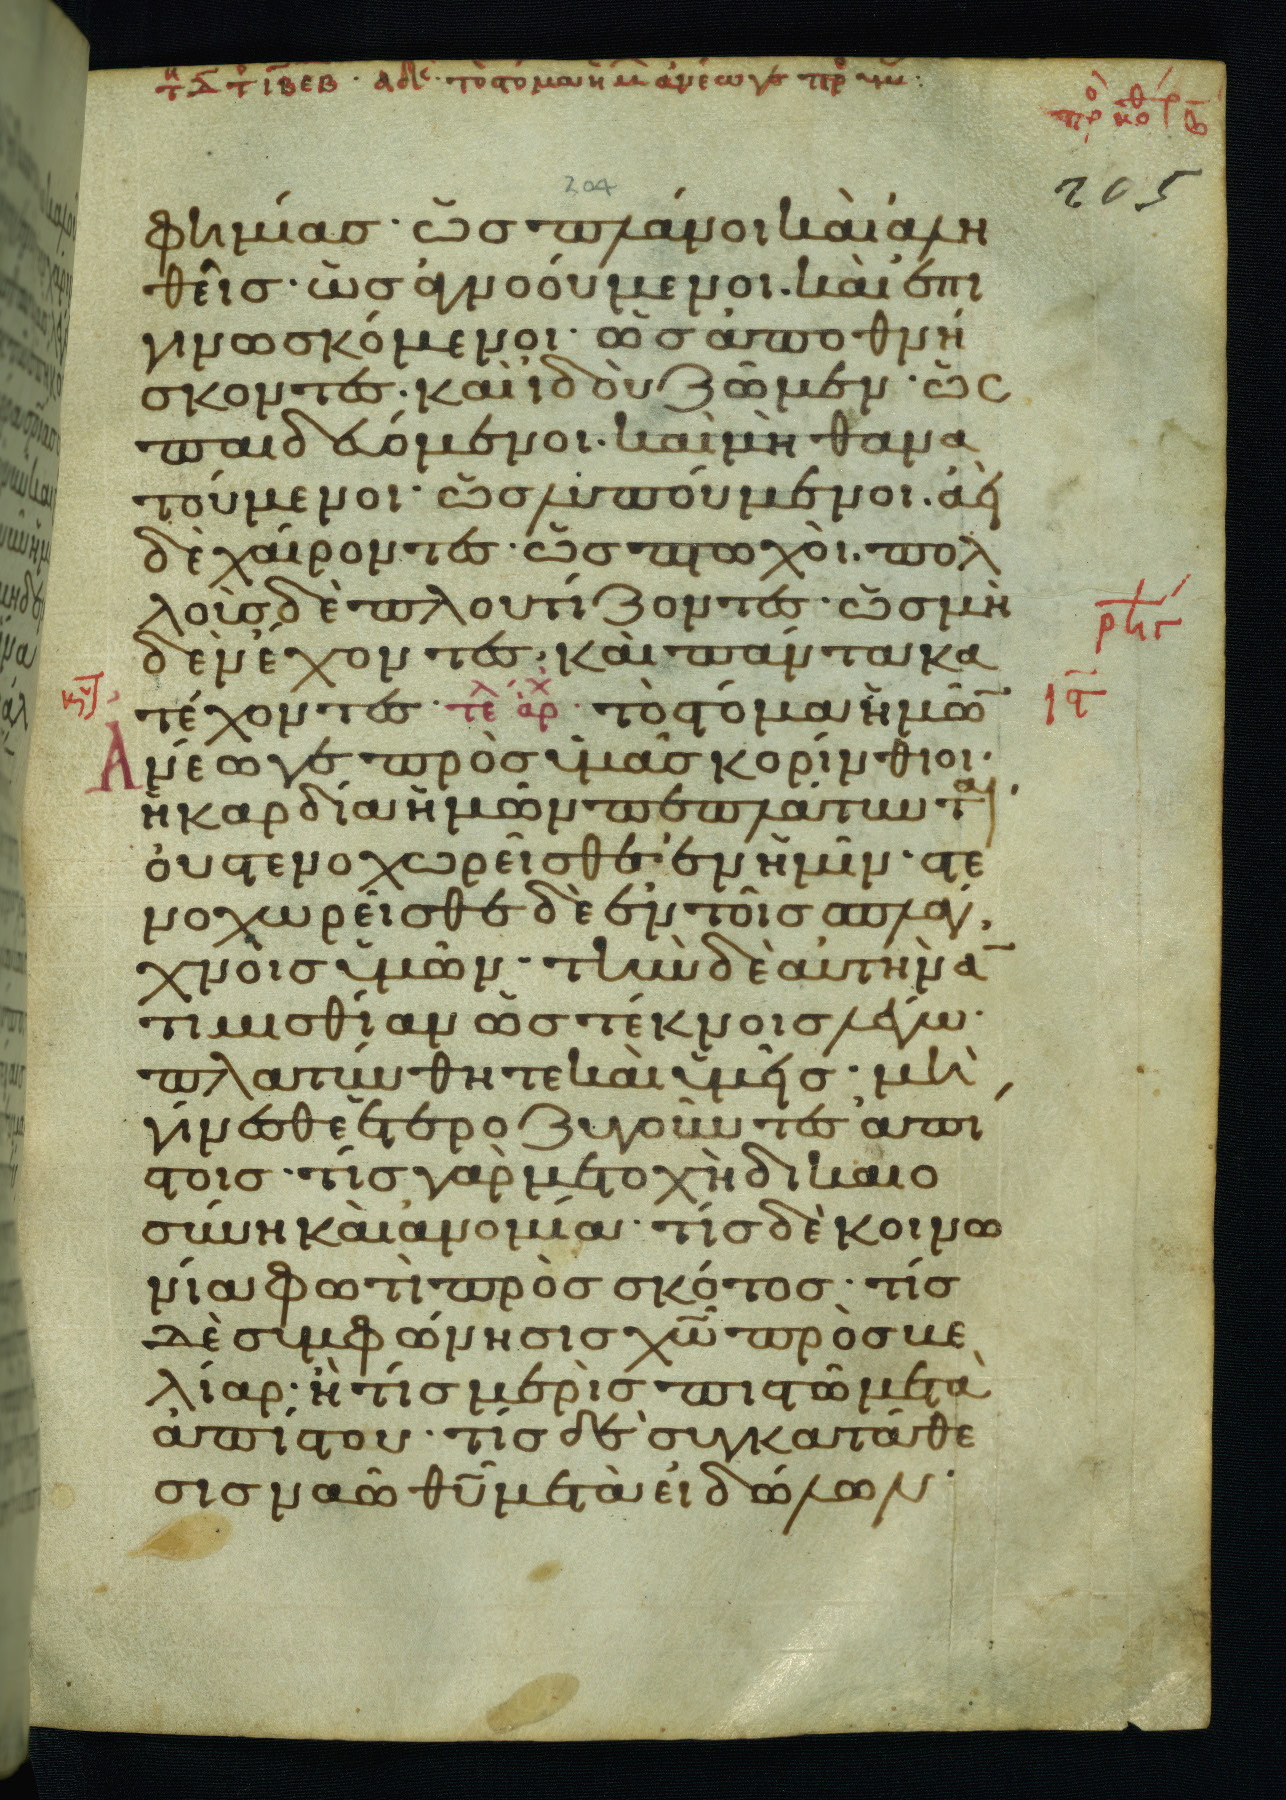 204
205
φημίας· ὡς πλάνοι καὶ ἀλη
θεῖς· ὡς ἀγνοούμενοι· καὶ ἐπι
γινωσκόμενοι· ὡς ἀποθνή
σκοντες· καὶ ἰδοὺ ζῶμεν· ὡς
παιδευόμενοι· καὶ μὴ θανα
τούμενοι· ὡς λυπούμενοι· ἀεὶ
δὲ χαίροντες· ὡς πτωχοὶ· πολ
λοὺς δὲ πλουτίζοντες· ὡς μη
δὲν ἔχοντες· καὶ πάντα κα
τέχοντες· τε αρχ τὸ στόμα ἡμῶ̄
Ἀνέωγε πρὸς ὑμᾶς κορίνθιοι·
ἡ καρδία ἡμῶν πεπλάτυνται
οὐ στενοχωρεῖσθε ἐν ἡμῖν· στε
νοχωρεῖσθε δὲ ἐν τοῖς σπλάγ
χνοις ὑμῶν· τὴν δὲ αὐτὴν ἀ̄
τιμισθίαν ὡς τέκνοις λέγω·
πλατύνθητε καὶ ὑμεῖς· μὴ
γίνεσθε ἑτεροζυγοῦντες ἀπί
στοις· τίς γὰρ μετοχὴ δικαιο
σύνη καὶ ἀνομία· τίς δὲ κοινω
νία φωτὶ πρὸς σκότος· τίς
δὲ συμφώνησις χω̄ πρὸς βε
λίαρ· ἢ τίς μερὶς πιστῶ μετὰ
ἀπίστου· τίς δὲ συγκατάθε
σις ναῶ θῡ μετὰ εἰδώλων·